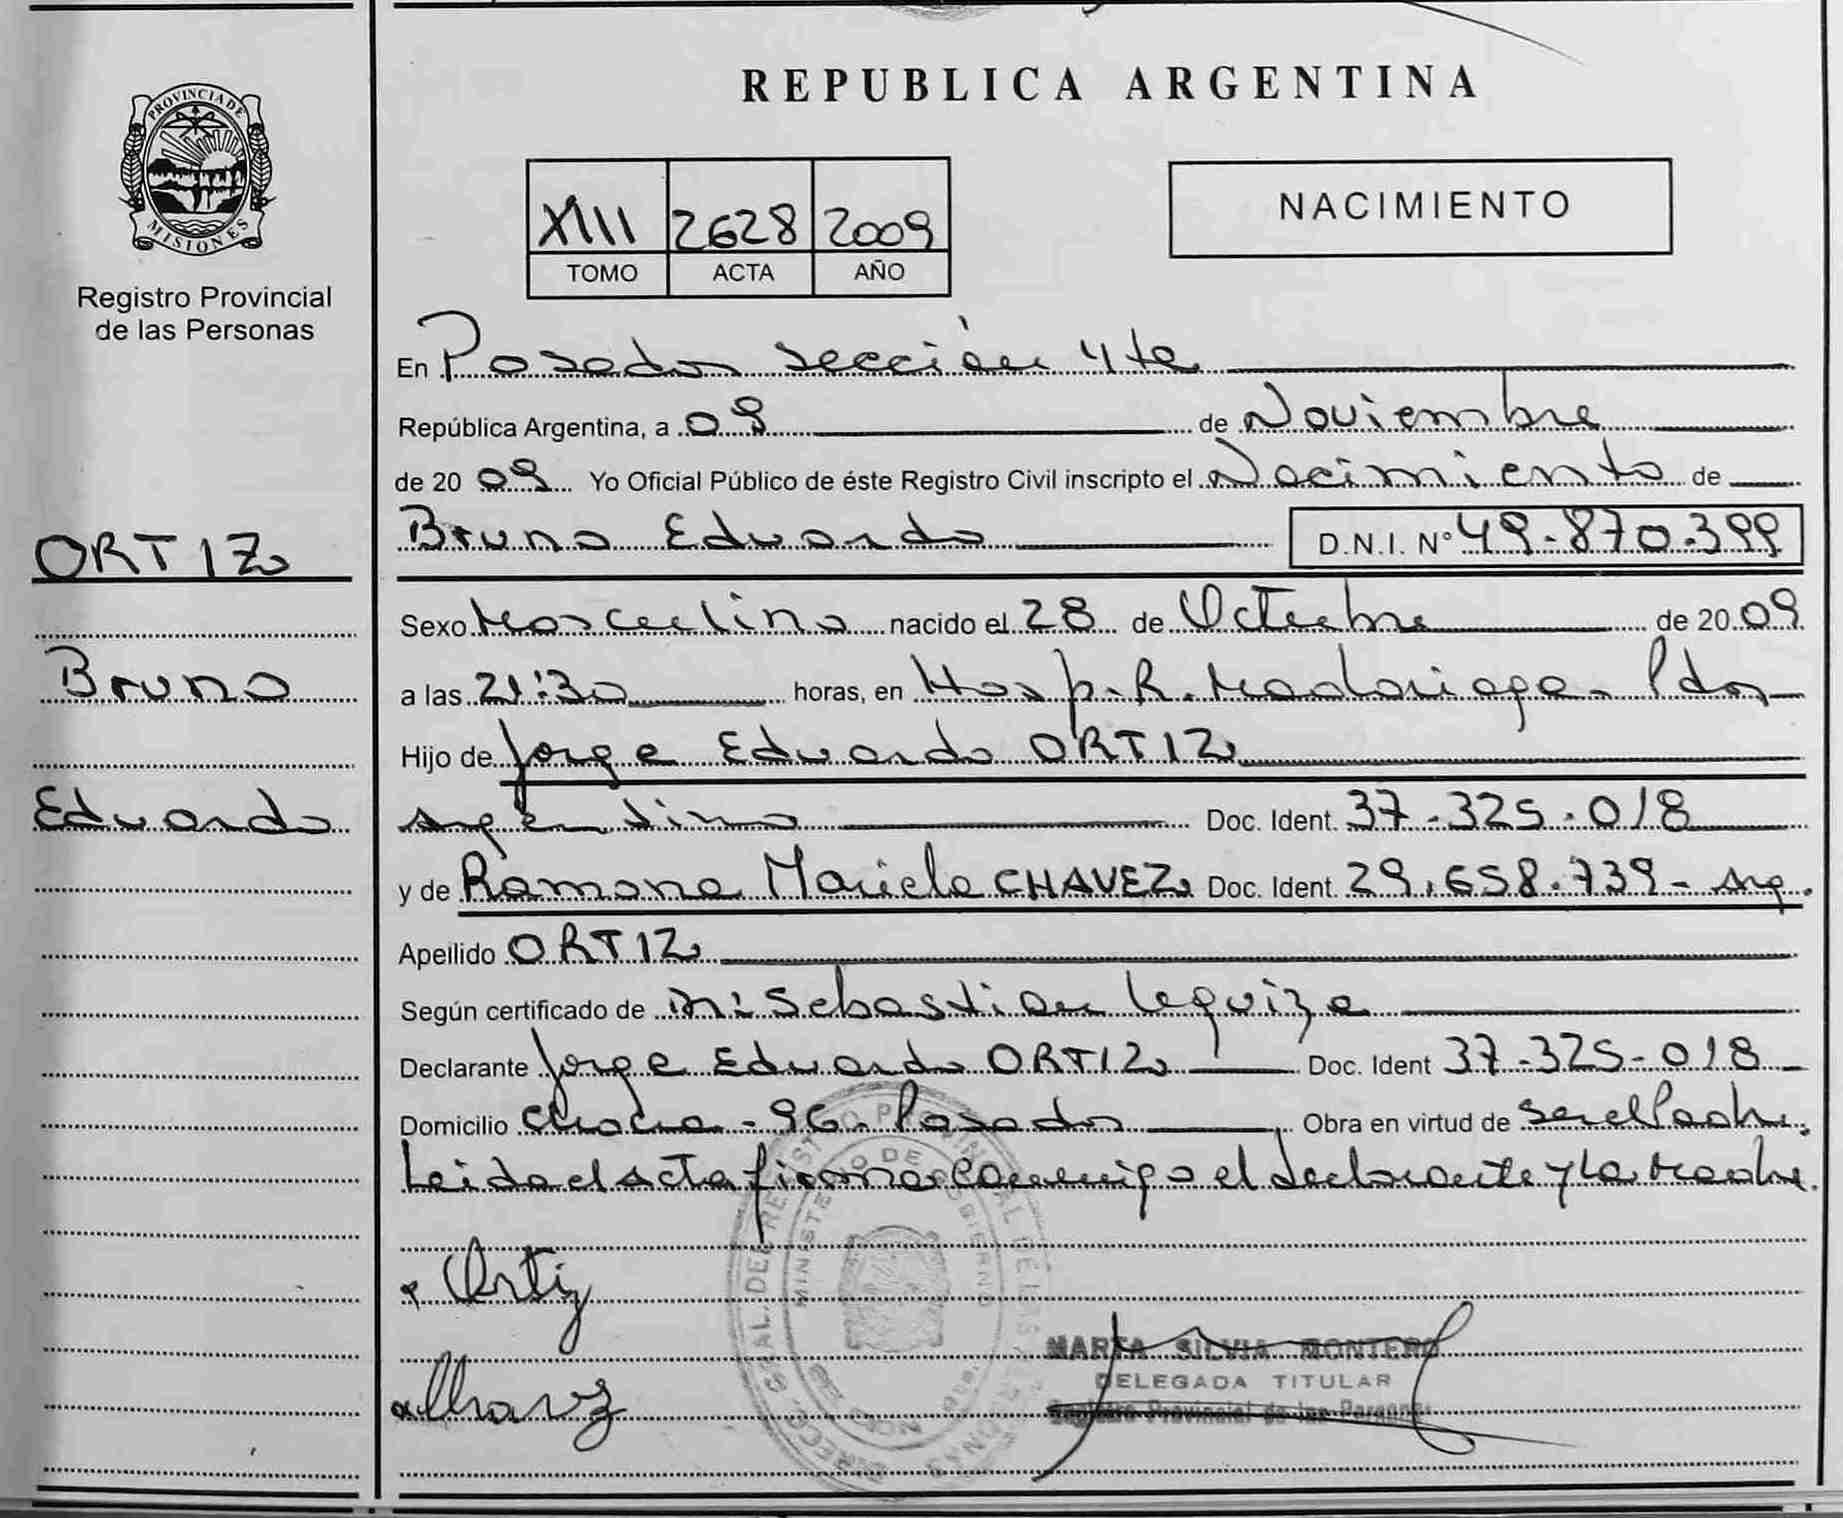 REPUBLICA ARGENTINA
PROVINCIA DE
MISIONES
Registro Provincial
de las Personas
XIII 2628 2009
TOMO ACTA AÑO
NACIMIENTO
En Posadas sección 4ta
República Argentina, a 09 de Noviembre
de 20 09 Yo Oficial Público de éste Registro Civil inscripto el Nacimiento de
Bruno Eduardo D.N.I. N° 49.870.399
ORTIZ
Bruno
Eduardo
Sexo Masculino nacido el 28 de Octubre de 20 09
a las 21:30 horas, en Hosp. R. Madariaga - Pdas
Hijo de Jorge Eduardo ORTIZ
argentino Doc. Ident. 37.325.018
y de Ramona Mariela CHAVEZ Doc. Ident. 29.658.739 - arg.
Apellido ORTIZ
Según certificado de Sebastian Leguiza
Declarante Jorge Eduardo ORTIZ Doc. Ident 37.325.018
Domicilio 96 - Posadas Obra en virtud de ser el Padre.
Leida el acta firman conmigo el declarante y la Madre.
Ortiz
Chavez
MARTA SILVIA MONTERO
DELEGADA TITULAR
Registro Provincial de las Personas